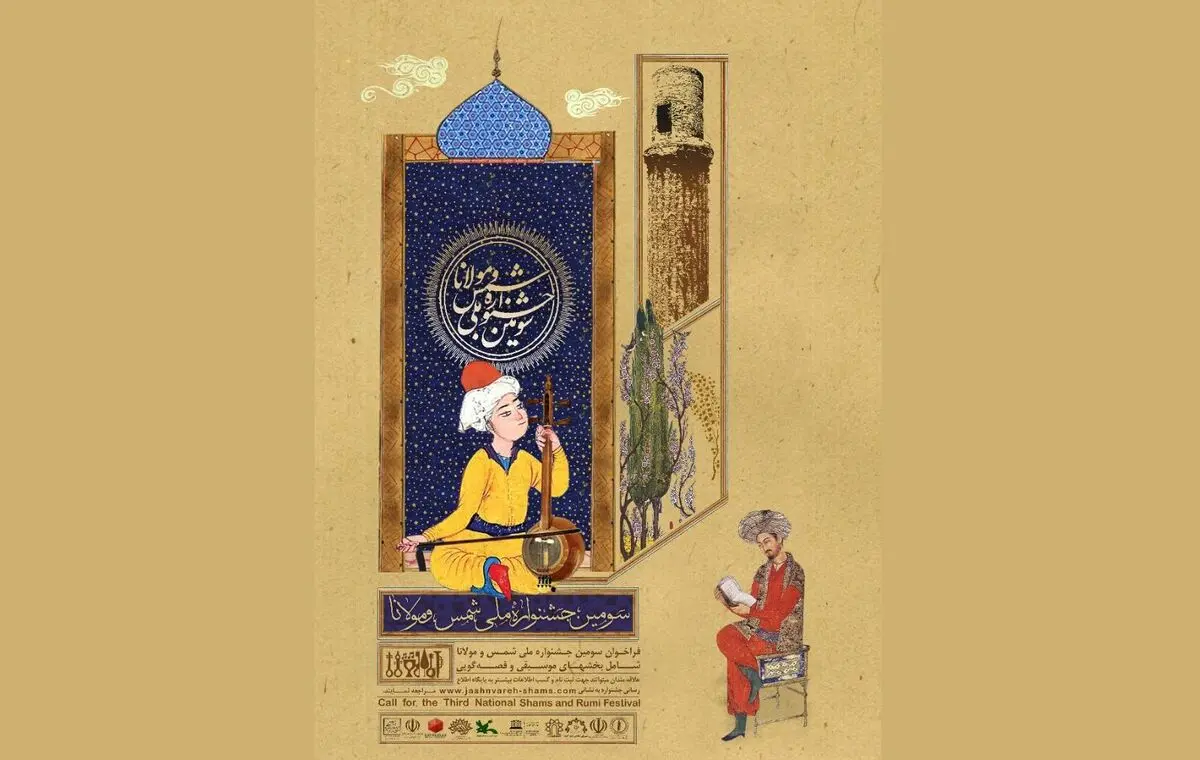 سومین
جشنواره ملی
شمس و مولانا
سومین جشنواره ملی شمس و مولانا
فراخوان سومین جشنواره ملی شمس و مولانا
شامل بخشهای موسیقی و قصه‌گویی
علاقه مندان میتوانند جهت ثبت نام و کسب اطلاعات بیشتر به پایگاه اطلاع
رسانی جشنواره به نشانی www.jashnvareh-shams.com مراجعه نمایند.
Call for the Third National Shams and Rumi Festival